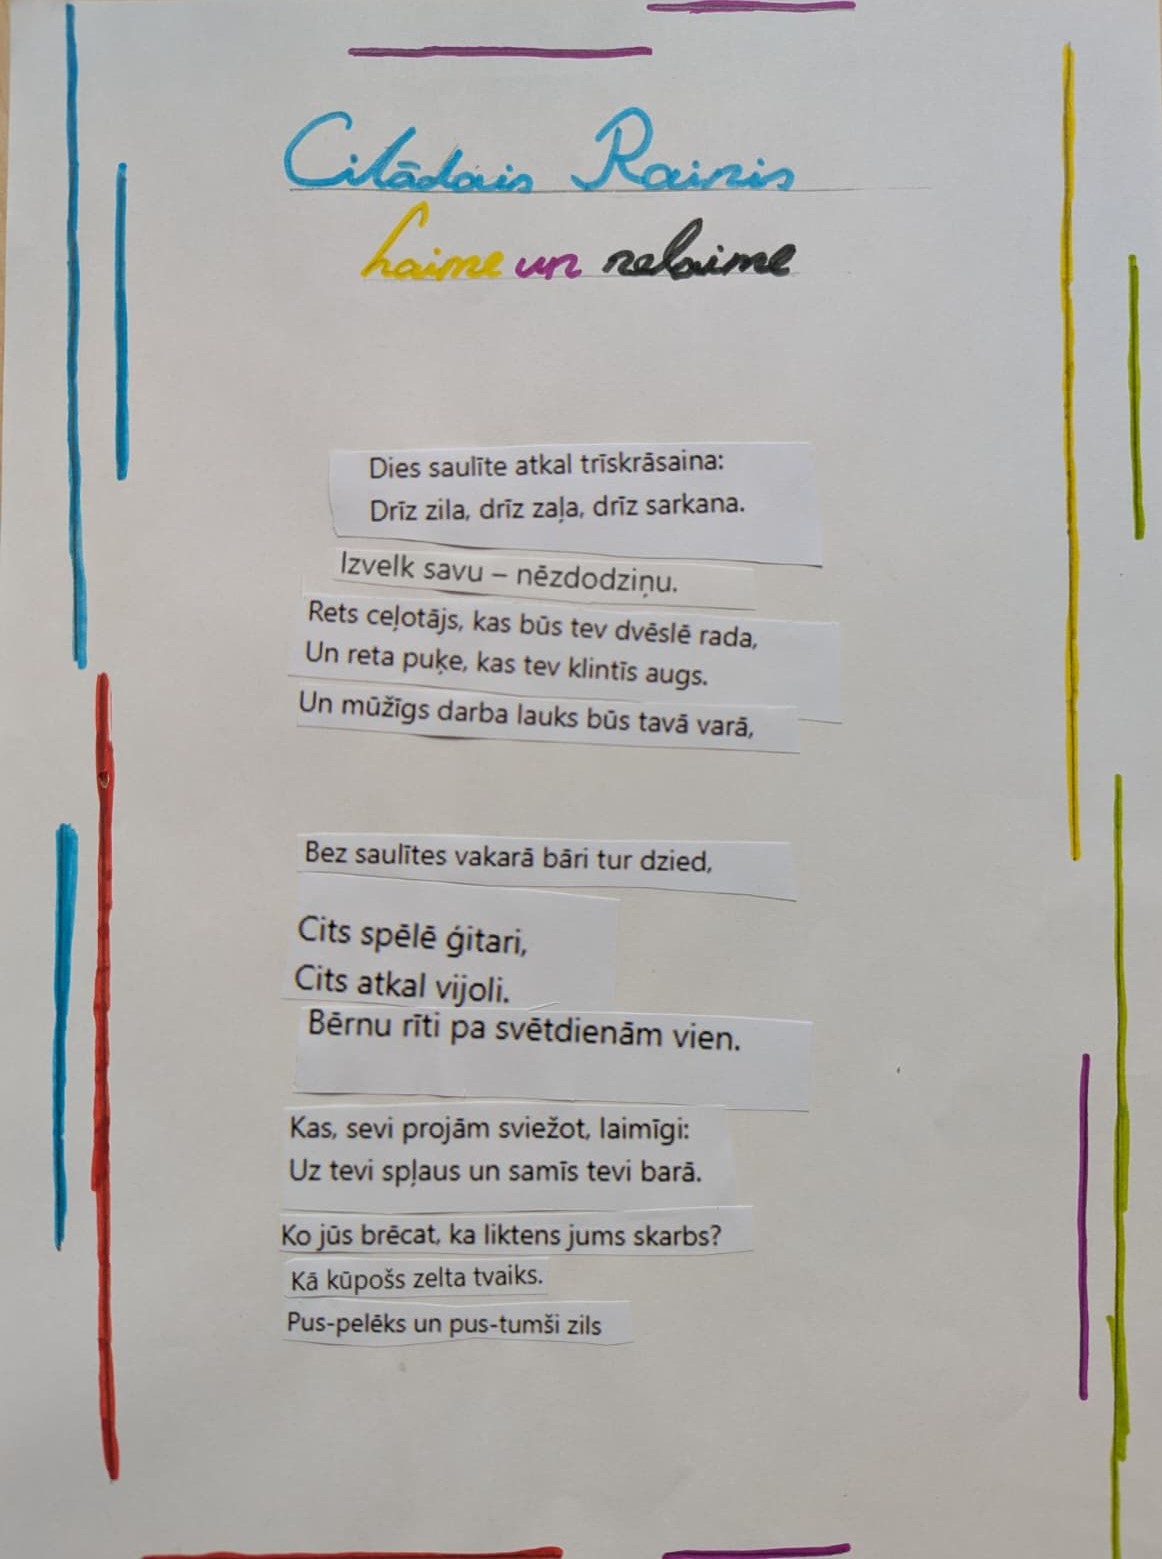 Citādais Rainis
Laime un nelaime
Dies saulīte atkal trīskrāsaina:
Drīz zila, drīz zaļa, drīz sarkana.
Izvelk savu – nēzdodziņu.
Rets ceļotājs, kas būs tev dvēslē rada,
Un reta puķe, kas tev klintīs augs.
Un mūžīgs darba lauks būs tavā varā,
Bez saulītes vakarā bāri tur dzied,
Cits spēlē ģitari,
Cits atkal vijoli.
Bērnu rīti pa svētdienām vien.
Kas, sevi projām sviežot, laimīgi:
Uz tevi spļaus un samīs tevi barā.
Ko jūs brēcat, ka liktens jums skarbs?
Kā kūpošs zelta tvaiks.
Pus-pelēks un pus-tumši zils